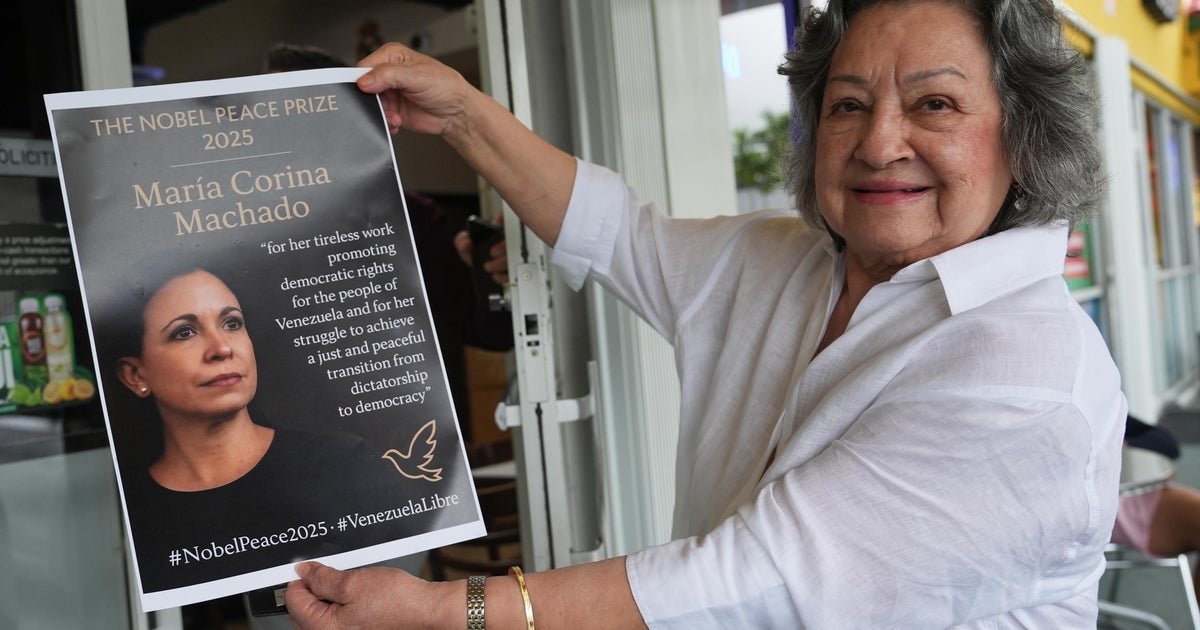 THE NOBEL PEACE PRIZE
2025
María Corina
Machado
“for her tireless work
promoting
democratic rights
for the people of
Venezuela and for her
struggle to achieve
a just and peaceful
transition from
dictatorship
to democracy”
#NobelPeace2025 · #VenezuelaLibre
a price adjustment
of acceptance.